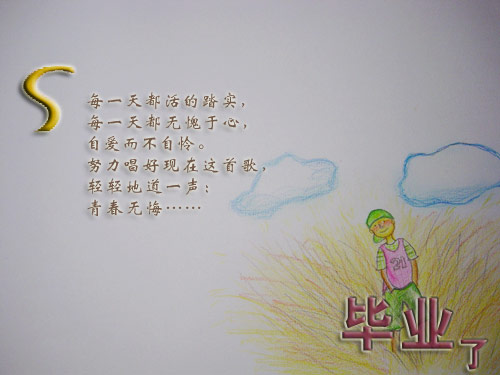 S
每一天都活的踏实，
每一天都无愧于心，
自爱而不自怜。
努力唱好现在这首歌，
轻轻地道一声：
青春无悔……
21
毕业了